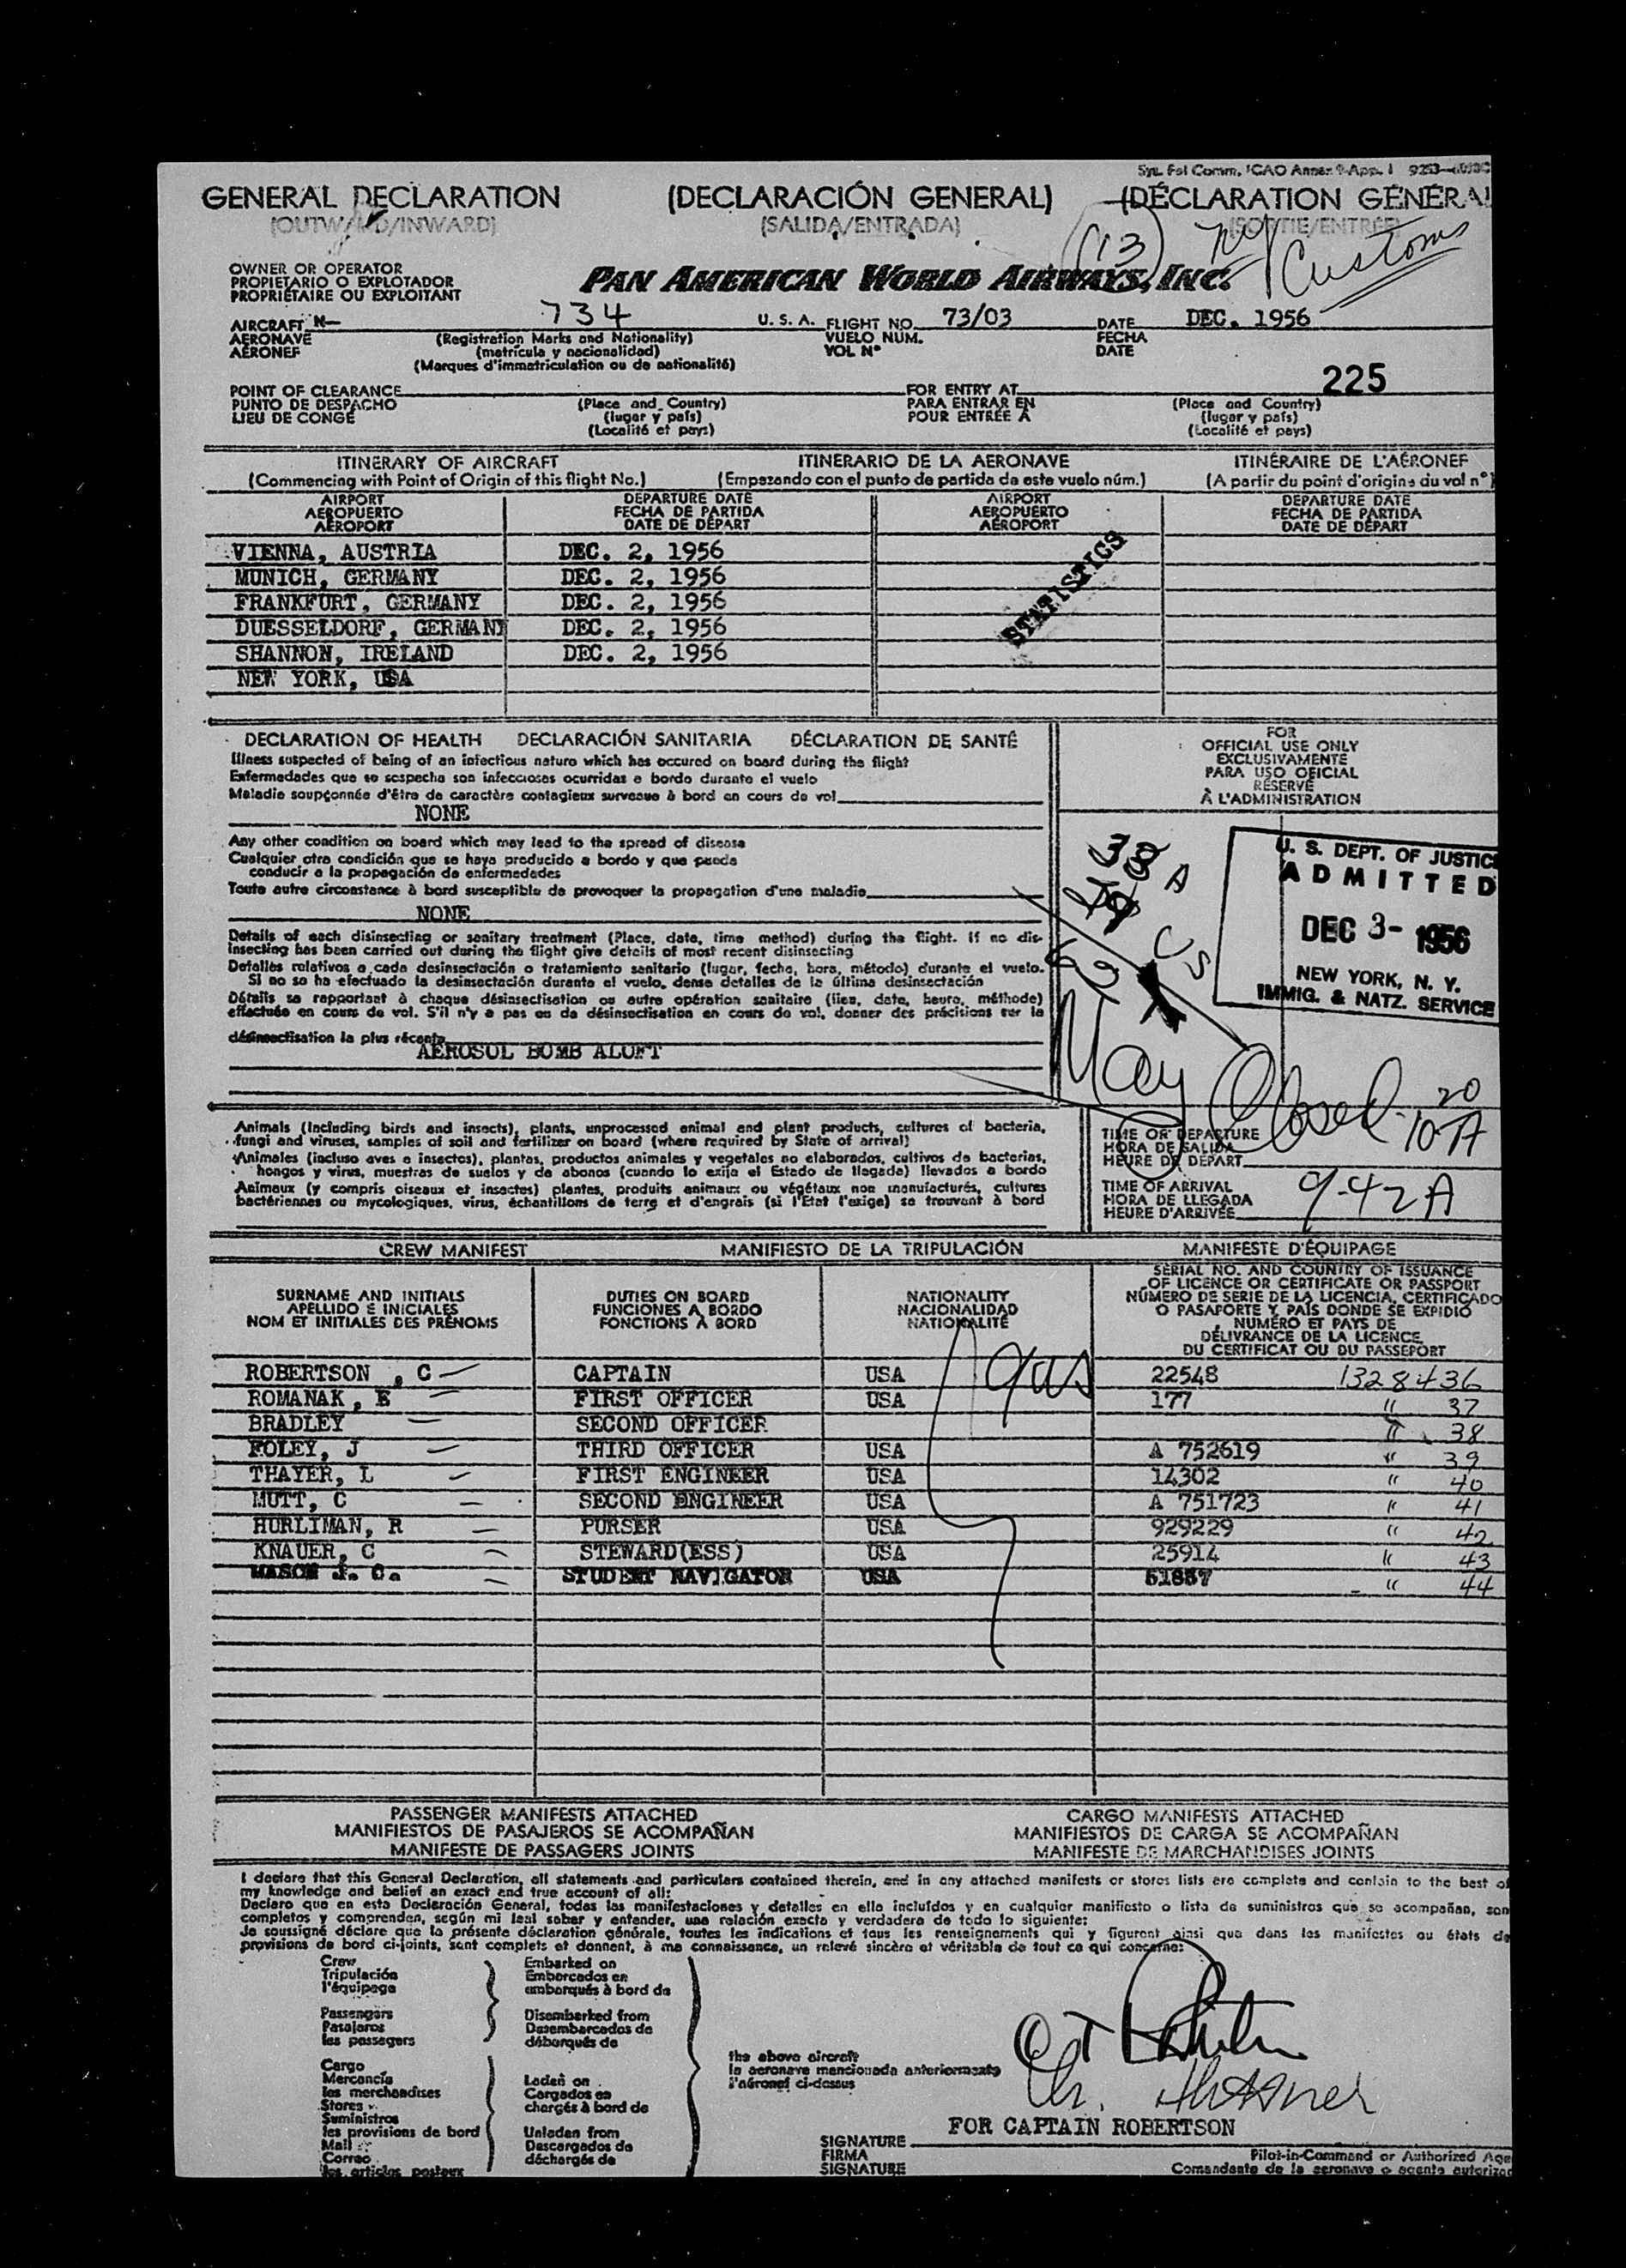 Sys. Fsl Comm. ICAO Annex 9 App. 1
GENERAL DECLARATION (DECLARACIÓN GENERAL) (DÉCLARATION GÉNÉRAL
(OUTWARD/INWARD) (SALIDA/ENTRADA) (SORTIE/ENTRÉE)
(13) NY Customs
OWNER OR OPERATOR
PROPIETARIO O EXPLOTADOR
PROPRIÉTAIRE OU EXPLOITANT
PAN AMERICAN WORLD AIRWAYS, INC.
AIRCRAFT N— 734 U. S. A. FLIGHT NO. 73/03 DATE DEC. 1956
AERONAVE (Registration Marks and Nationality) VUELO NUM. FECHA
AÉRONEF (matrícula y nacionalidad) VOL N° DATE
(Marques d'immatriculation ou de nationalité)
225
POINT OF CLEARANCE FOR ENTRY AT
PUNTO DE DESPACHO (Place and Country) PARA ENTRAR EN (Place and Country)
LIEU DE CONGÉ (lugar y país) POUR ENTRÉE À (lugar y país)
(Localité et pays) (Localité et pays)
ITINERARY OF AIRCRAFT ITINERARIO DE LA AERONAVE ITINÉRAIRE DE L'AÉRONEF
(Commencing with Point of Origin of this flight No.) (Empezando con el punto de partida de este vuelo núm.) (A partir du point d'origine du vol n°)
AIRPORT DEPARTURE DATE AIRPORT DEPARTURE DATE
AEROPUERTO FECHA DE PARTIDA AEROPUERTO FECHA DE PARTIDA
AÉROPORT DATE DE DÉPART AÉROPORT DATE DE DÉPART
VIENNA, AUSTRIA DEC. 2, 1956
MUNICH, GERMANY DEC. 2, 1956
FRANKFURT, GERMANY DEC. 2, 1956
DUESSELDORF, GERMANY DEC. 2, 1956
SHANNON, IRELAND DEC. 2, 1956
NEW YORK, USA
STATISTICS
DECLARATION OF HEALTH DECLARACIÓN SANITARIA DÉCLARATION DE SANTÉ
Illness suspected of being of an infectious nature which has occured on board during the flight
Enfermedades que se sospecha son infecciosas ocurridas a bordo durante el vuelo
Maladie soupçonnée d'être de caractère contagieux survenue à bord en cours de vol
NONE
Any other condition on board which may lead to the spread of disease
Cualquier otra condición que se haya producido a bordo y que pueda
conducir a la propagación de enfermedades
Toute autre circonstance à bord susceptible de provoquer la propagation d'une maladie
NONE
Details of each disinsecting or sanitary treatment (Place, date, time method) during the flight. If no dis-
insecting has been carried out during the flight give details of most recent disinsecting
Detalles relativos a cada desinsectación o tratamiento sanitario (lugar, fecha, hora, método) durante el vuelo.
Si no se ha efectuado la desinsectación durante el vuelo, dense detalles de la última desinsectación
Détails se rapportant à chaque désinsectisation ou autre opération sanitaire (lieu, date, heure, méthode)
effectuée en cours de vol. S'il n'y a pas eu de désinsectisation en cours de vol, donner des précisions sur la
désinsectisation la plus récente
AEROSOL BOMB ALOFT
FOR
OFFICIAL USE ONLY
EXCLUSIVAMENTE
PARA USO OFICIAL
RÉSERVÉ
À L'ADMINISTRATION
38 A
US
U. S. DEPT. OF JUSTIC
ADMITTED
DEC 3- 1956
NEW YORK, N. Y.
IMMIG. & NATZ. SERVICE
May Closed 10 20 A
Animals (Including birds and insects), plants, unprocessed animal and plant products, cultures of bacteria,
fungi and viruses, samples of soil and fertilizer on board (where required by State of arrival)
Animales (incluso aves e insectos), plantas, productos animales y vegetales no elaborados, cultivos de bacterias,
hongos y virus, muestras de suelos y de abonos (cuando lo exija el Estado de llegada) llevados a bordo
Animaux (y compris oiseaux et insectes) plantes, produits animaux ou végétaux non manufacturés, cultures
bactériennes ou mycologiques, virus, échantillons de terre et d'engrais (si l'Etat l'exige) se trouvant à bord
TIME OF DEPARTURE
HORA DE SALIDA
HEURE DE DÉPART
TIME OF ARRIVAL
HORA DE LLEGADA
HEURE D'ARRIVÉE 9-42 A
CREW MANIFEST MANIFIESTO DE LA TRIPULACIÓN MANIFESTE D'ÉQUIPAGE
SURNAME AND INITIALS
APELLIDO E INICIALES
NOM ET INITIALES DES PRÉNOMS
DUTIES ON BOARD
FUNCIONES A BORDO
FONCTIONS À BORD
NATIONALITY
NACIONALIDAD
NATIONALITÉ
SERIAL NO. AND COUNTRY OF ISSUANCE
OF LICENCE OR CERTIFICATE OR PASSPORT
NÚMERO DE SERIE DE LA LICENCIA, CERTIFICADO
O PASAPORTE Y PAÍS DONDE SE EXPIDIÓ
NUMÉRO ET PAYS DE
DÉLIVRANCE DE LA LICENCE
DU CERTIFICAT OU DU PASSEPORT
ROBERTSON , C CAPTAIN USA 22548 1328436
ROMANAK , E FIRST OFFICER USA 177 " 37
BRADLEY SECOND OFFICER " 38
FOLEY, J THIRD OFFICER USA A 752619 " 39
THAYER, L FIRST ENGINEER USA 14302 " 40
MUTT, C SECOND ENGINEER USA A 751723 " 41
HURLIMAN, R PURSER USA 929229 " 42
KNAUER, C STEWARD(ESS) USA 25914 " 43
MASON J. C. STUDENT NAVIGATOR USA 51887 " 44
PASSENGER MANIFESTS ATTACHED CARGO MANIFESTS ATTACHED
MANIFIESTOS DE PASAJEROS SE ACOMPAÑAN MANIFIESTOS DE CARGA SE ACOMPAÑAN
MANIFESTE DE PASSAGERS JOINTS MANIFESTE DE MARCHANDISES JOINTS
I declare that this General Declaration, all statements and particulars contained therein, and in any attached manifests or stores lists are complete and contain to the best of
my knowledge and belief an exact and true account of all:
Declaro que en esta Declaración General, todas las manifestaciones y detalles en ella incluídos y en cualquier manifiesto o lista de suministros que se acompañan, son
completos y comprenden, según mi leal saber y entender, una relación exacta y verdadera de todo lo siguiente:
Je soussigné déclare que la présente déclaration générale, toutes les indications et tous les renseignements qui y figurent ainsi que dans les manifestes ou états de
provisions de bord ci-joints, sont complets et donnent, à ma connaissance, un relevé sincère et véritable de tout ce qui concerne:
Crew
Tripulación
l'équipage
Passengers
Pasajeros
les passagers
Cargo
Mercancía
les merchandises
Stores
Suministros
les provisions de bord
Mail
Correo
les articles postaux
Embarked on
Embarcados en
embarqués à bord de
Disembarked from
Desembarcados de
débarqués de
Laden on
Cargados en
chargés à bord de
Unladen from
Descargados de
déchargés de
the above aircraft
la aeronave mencionada anteriormente
l'aéronef ci-dessus
FOR CAPTAIN ROBERTSON
SIGNATURE
FIRMA
SIGNATURE
Pilot-in-Command or Authorized Age
Comandante de la aeronave o agente autorizad